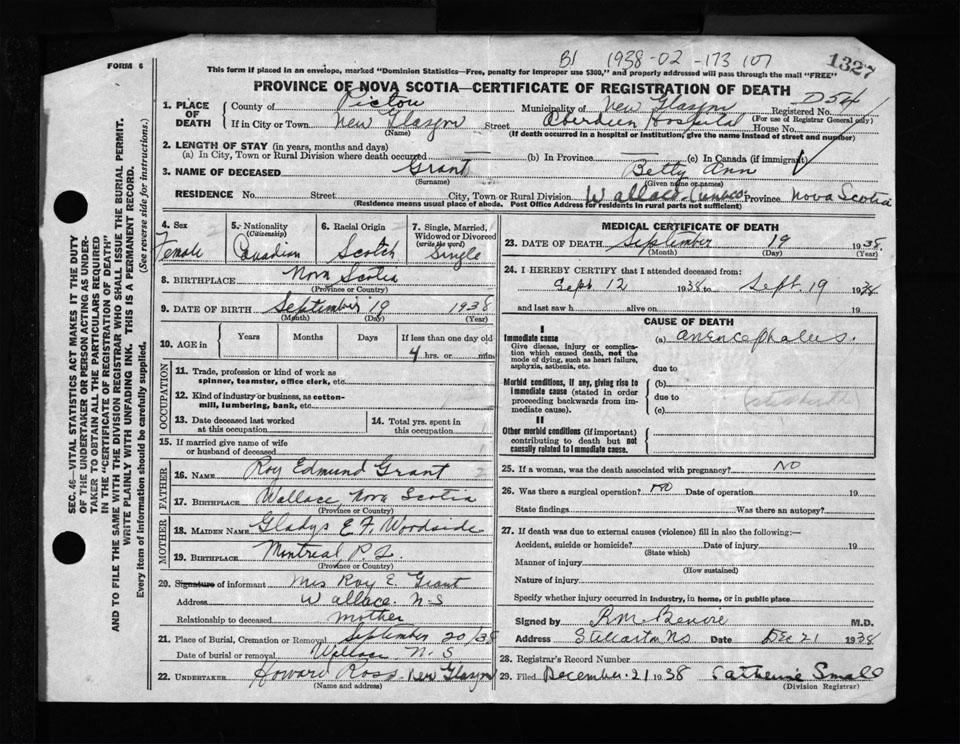 B1 1938-02-173107
1327
FORM 6
This form if placed in an envelope, marked "Dominion Statistics—Free, penalty for improper use $300," and properly addressed will pass through the mail "FREE"
PROVINCE OF NOVA SCOTIA—CERTIFICATE OF REGISTRATION OF DEATH
1. PLACE OF DEATH
County of Pictou Municipality of New Glasgow Registered No. D54
(For use of Registrar General only)
If in City or Town New Glasgow Street Aberdeen Hospital House No.
(Name) (If death occurred in a hospital or institution, give the name instead of street and number)
2. LENGTH OF STAY (in years, months and days)
(a) In City, Town or Rural Division where death occurred — (b) In Province — (c) In Canada (if immigrant)
3. NAME OF DECEASED Grant Betty Ann
(Surname) (Given name or names)
RESIDENCE No. Street City, Town or Rural Division Wallace Province Nova Scotia
(Residence means usual place of abode. Post Office Address for residents in rural parts not sufficient)
4. Sex Female
5. Nationality (Citizenship) Canadian
6. Racial Origin Scotch
7. Single, Married, Widowed or Divorced (write the word) Single
8. BIRTHPLACE Nova Scotia
(Province or Country)
9. DATE OF BIRTH September 19 1938
(Month) (Day) (Year)
10. AGE in Years Months Days If less than one day old
4 hrs. or min.
OCCUPATION
11. Trade, profession or kind of work as spinner, teamster, office clerk, etc.
12. Kind of industry or business, as cotton-mill, lumbering, bank, etc.
13. Date deceased last worked at this occupation
14. Total yrs. spent in this occupation
15. If married give name of wife or husband of deceased
FATHER
16. NAME Roy Edmund Grant
17. BIRTHPLACE Wallace, Nova Scotia
(Province or Country)
MOTHER
18. MAIDEN NAME Gladys E F Woodside
19. BIRTHPLACE Montreal P.Q.
(Province or Country)
20. Signature of informant Mrs Roy E. Grant
Address Wallace. N-S
Relationship to deceased mother
21. Place of Burial, Cremation or Removal September 20/38
Date of burial or removal Wallace N. S
22. UNDERTAKER Howard Ross New Glasgow
(Name and address)
MEDICAL CERTIFICATE OF DEATH
23. DATE OF DEATH September 19 1938
(Month) (Day) (Year)
24. I HEREBY CERTIFY that I attended deceased from:
Sept 12 1938 to Sept. 19 1938
and last saw h alive on 19
CAUSE OF DEATH
I
Immediate cause
Give disease, injury or complication which caused death, not the mode of dying, such as heart failure, asphyxia, asthenia, etc.
(a) anencephalus.
due to
Morbid conditions, if any, giving rise to immediate cause (stated in order proceeding backwards from immediate cause).
(b)
due to
(c)
II
Other morbid conditions (if important) contributing to death but not causally related to immediate cause.
25. If a woman, was the death associated with pregnancy? NO
26. Was there a surgical operation? NO Date of operation 19
State findings Was there an autopsy?
27. If death was due to external causes (violence) fill in also the following:—
Accident, suicide or homicide? Date of injury 19
(State which)
Manner of injury
(How sustained)
Nature of injury
Specify whether injury occurred in industry, in home, or in public place
Signed by M.D.
Address Stellarton N.S Date Dec 21 1938
28. Registrar's Record Number
29. Filed December. 21 1938 Catherine Small
(Division Registrar)
SEC. 46—VITAL STATISTICS ACT MAKES IT THE DUTY
OF THE UNDERTAKER OR PERSON ACTING AS UNDER-
TAKER TO OBTAIN ALL THE PARTICULARS REQUIRED
IN THE "CERTIFICATE OF REGISTRATION OF DEATH"
AND TO FILE THE SAME WITH THE DIVISION REGISTRAR WHO SHALL ISSUE THE BURIAL PERMIT.
WRITE PLAINLY WITH UNFADING INK. THIS IS A PERMANENT RECORD.
Every item of information should be carefully supplied. (See reverse side for instructions.)